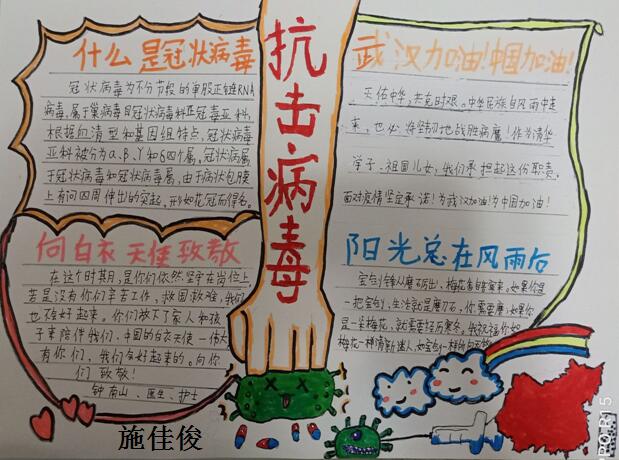 什么是冠状病毒
冠状病毒为不分节段的单股正链RNA
病毒,属于巢病毒目冠状病毒科正冠毒亚科,
根据血清型和基因组特点,冠状病毒
亚科被分为α、β、γ和δ四个属,冠状病属
于冠状病毒和冠状病毒属,由于病状包膜
上有向四周伸出的突起,形如花冠而得名。
向白衣天使致敬
在这个时期,是你们依然坚守在岗位上,
若是没有你们辛苦工作,救国救难,我们
也不会好起来。你们放下了家人和孩
子来陪伴我们,中国的白衣天使一伟大
有你们,我们会好起来的。向你
们致敬!
钟南山、医生、护士
抗击病毒
武汉加油!中国加油!
天佑中华,共克时艰。中华民族自风雨中走
来,也必将坚韧地战胜病魔!作为清华
学子、祖国儿女,我们承担起这份职责。
面对疫情坚定承诺!为武汉加油!为中国加油!
阳光总在风雨后
宝剑锋从磨砺出,梅花香自苦寒来。如果你是
一把宝剑,生活就是磨刀石,你需要磨;如果你
是一朵梅花,就需要经历寒冬。我祝福你如
梅花一样清新迷人,如宝剑一样
施佳俊
PRO R15